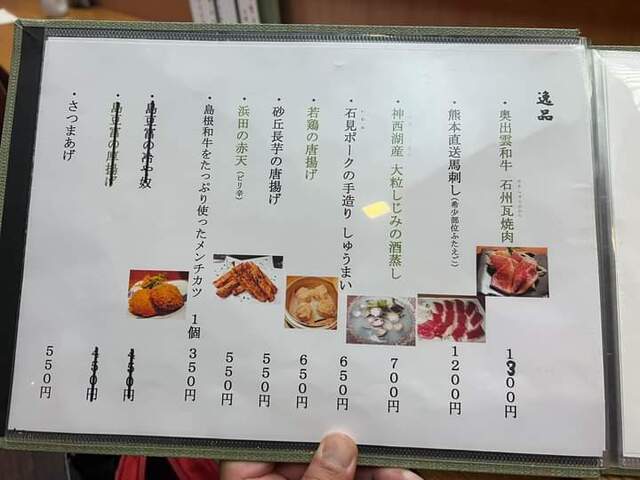 逸品
・奥出雲和牛 石州瓦焼肉 1300円
・熊本直送馬刺し(希少部位ふたたご) 1200円
・神西湖産 大粒しじみの酒蒸し 700円
・石見ポークの手造り しゅうまい 650円
・若鶏の唐揚げ 650円
・砂丘長芋の唐揚げ 550円
・浜田の赤天(ピリ辛) 550円
・島根和牛をたっぷり使ったメンチカツ 1個 350円
・島豆富の冷や奴 450円
・島豆富の唐揚げ 450円
・さつまあげ 550円